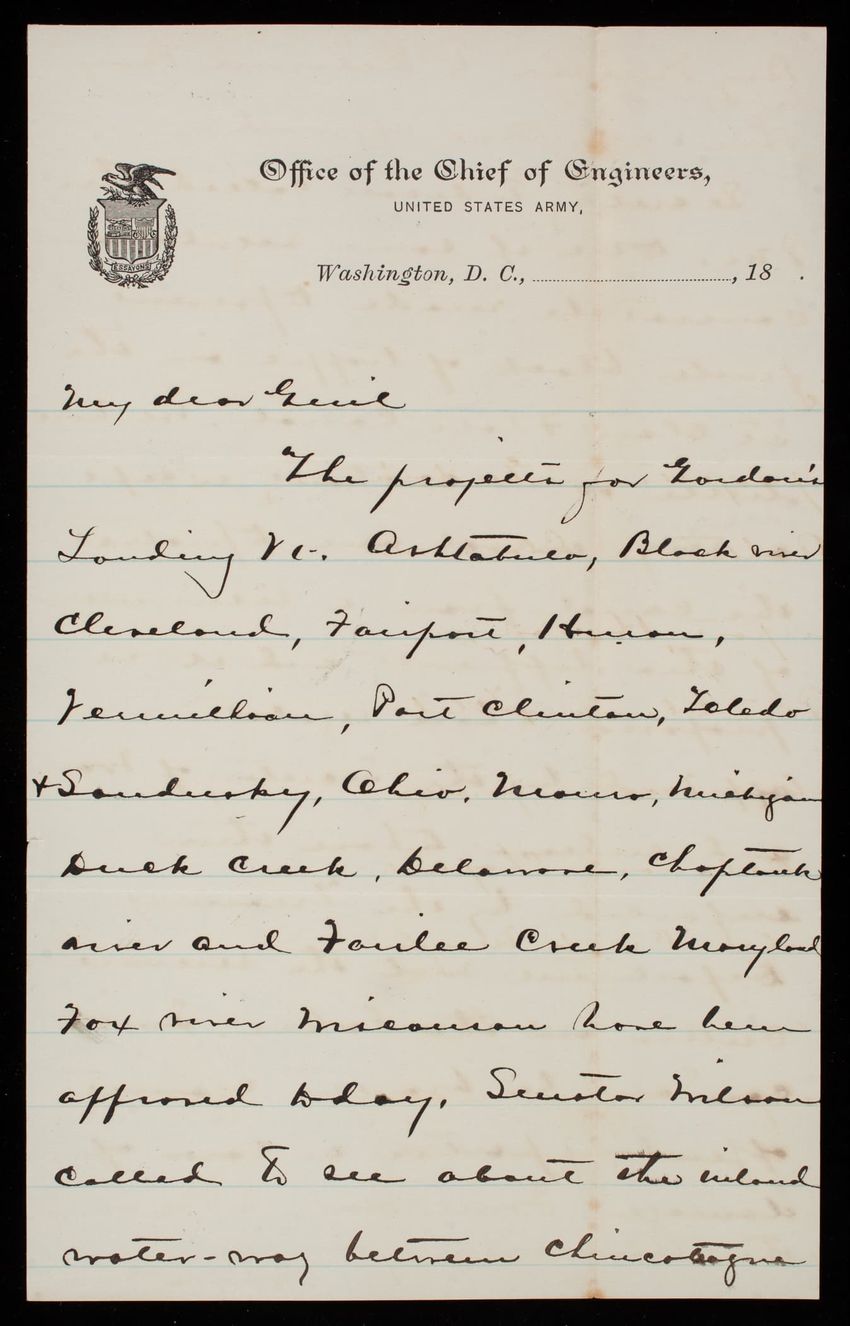 Office of the Chief of Engineers,
UNITED STATES ARMY,
Washington, D. C., , 18 .
ESSAYONS
My dear Genl
The projects for Gordon's
Landing Vt. Ashtabula, Black river
Cleveland, Fairport, Huron,
Vermillion, Port Clinton, Toledo
+ Sandusky, Ohio. Monro, Michigan
Duck Creek, Delaware, Choptank
river and Fairlee Creek Maryland
Fox river Wisconsin have been
approved today. Senator Wilson
called to see about the inland
water-way between Chincoteague